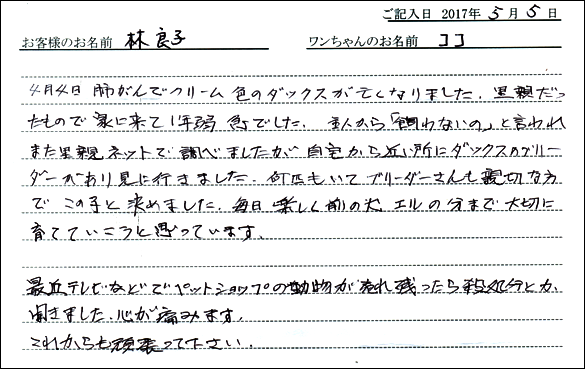 ご記入日 2017年 5月 5日
お客様のお名前 林 良子 ワンちゃんのお名前 ココ
4月4日 肺がんでクリーム色のダックスが亡くなりました。里親だっ
たもので家に来て1年弱 急でした。主人から「飼わないの」と言われ
また里親ネットで調べましたが 自宅から近い所にダックスのブリー
ダーがあり見に行きました。何匹もいてブリーダーさんも親切な方
で この子と決めました。毎日 楽しく前の犬、エルの分まで大切に
育てていこうと思っています。
最近テレビなどでペットショップの動物が売れ残ったら殺処分とか
聞きました。心が痛みます。
これからも頑張って下さい。